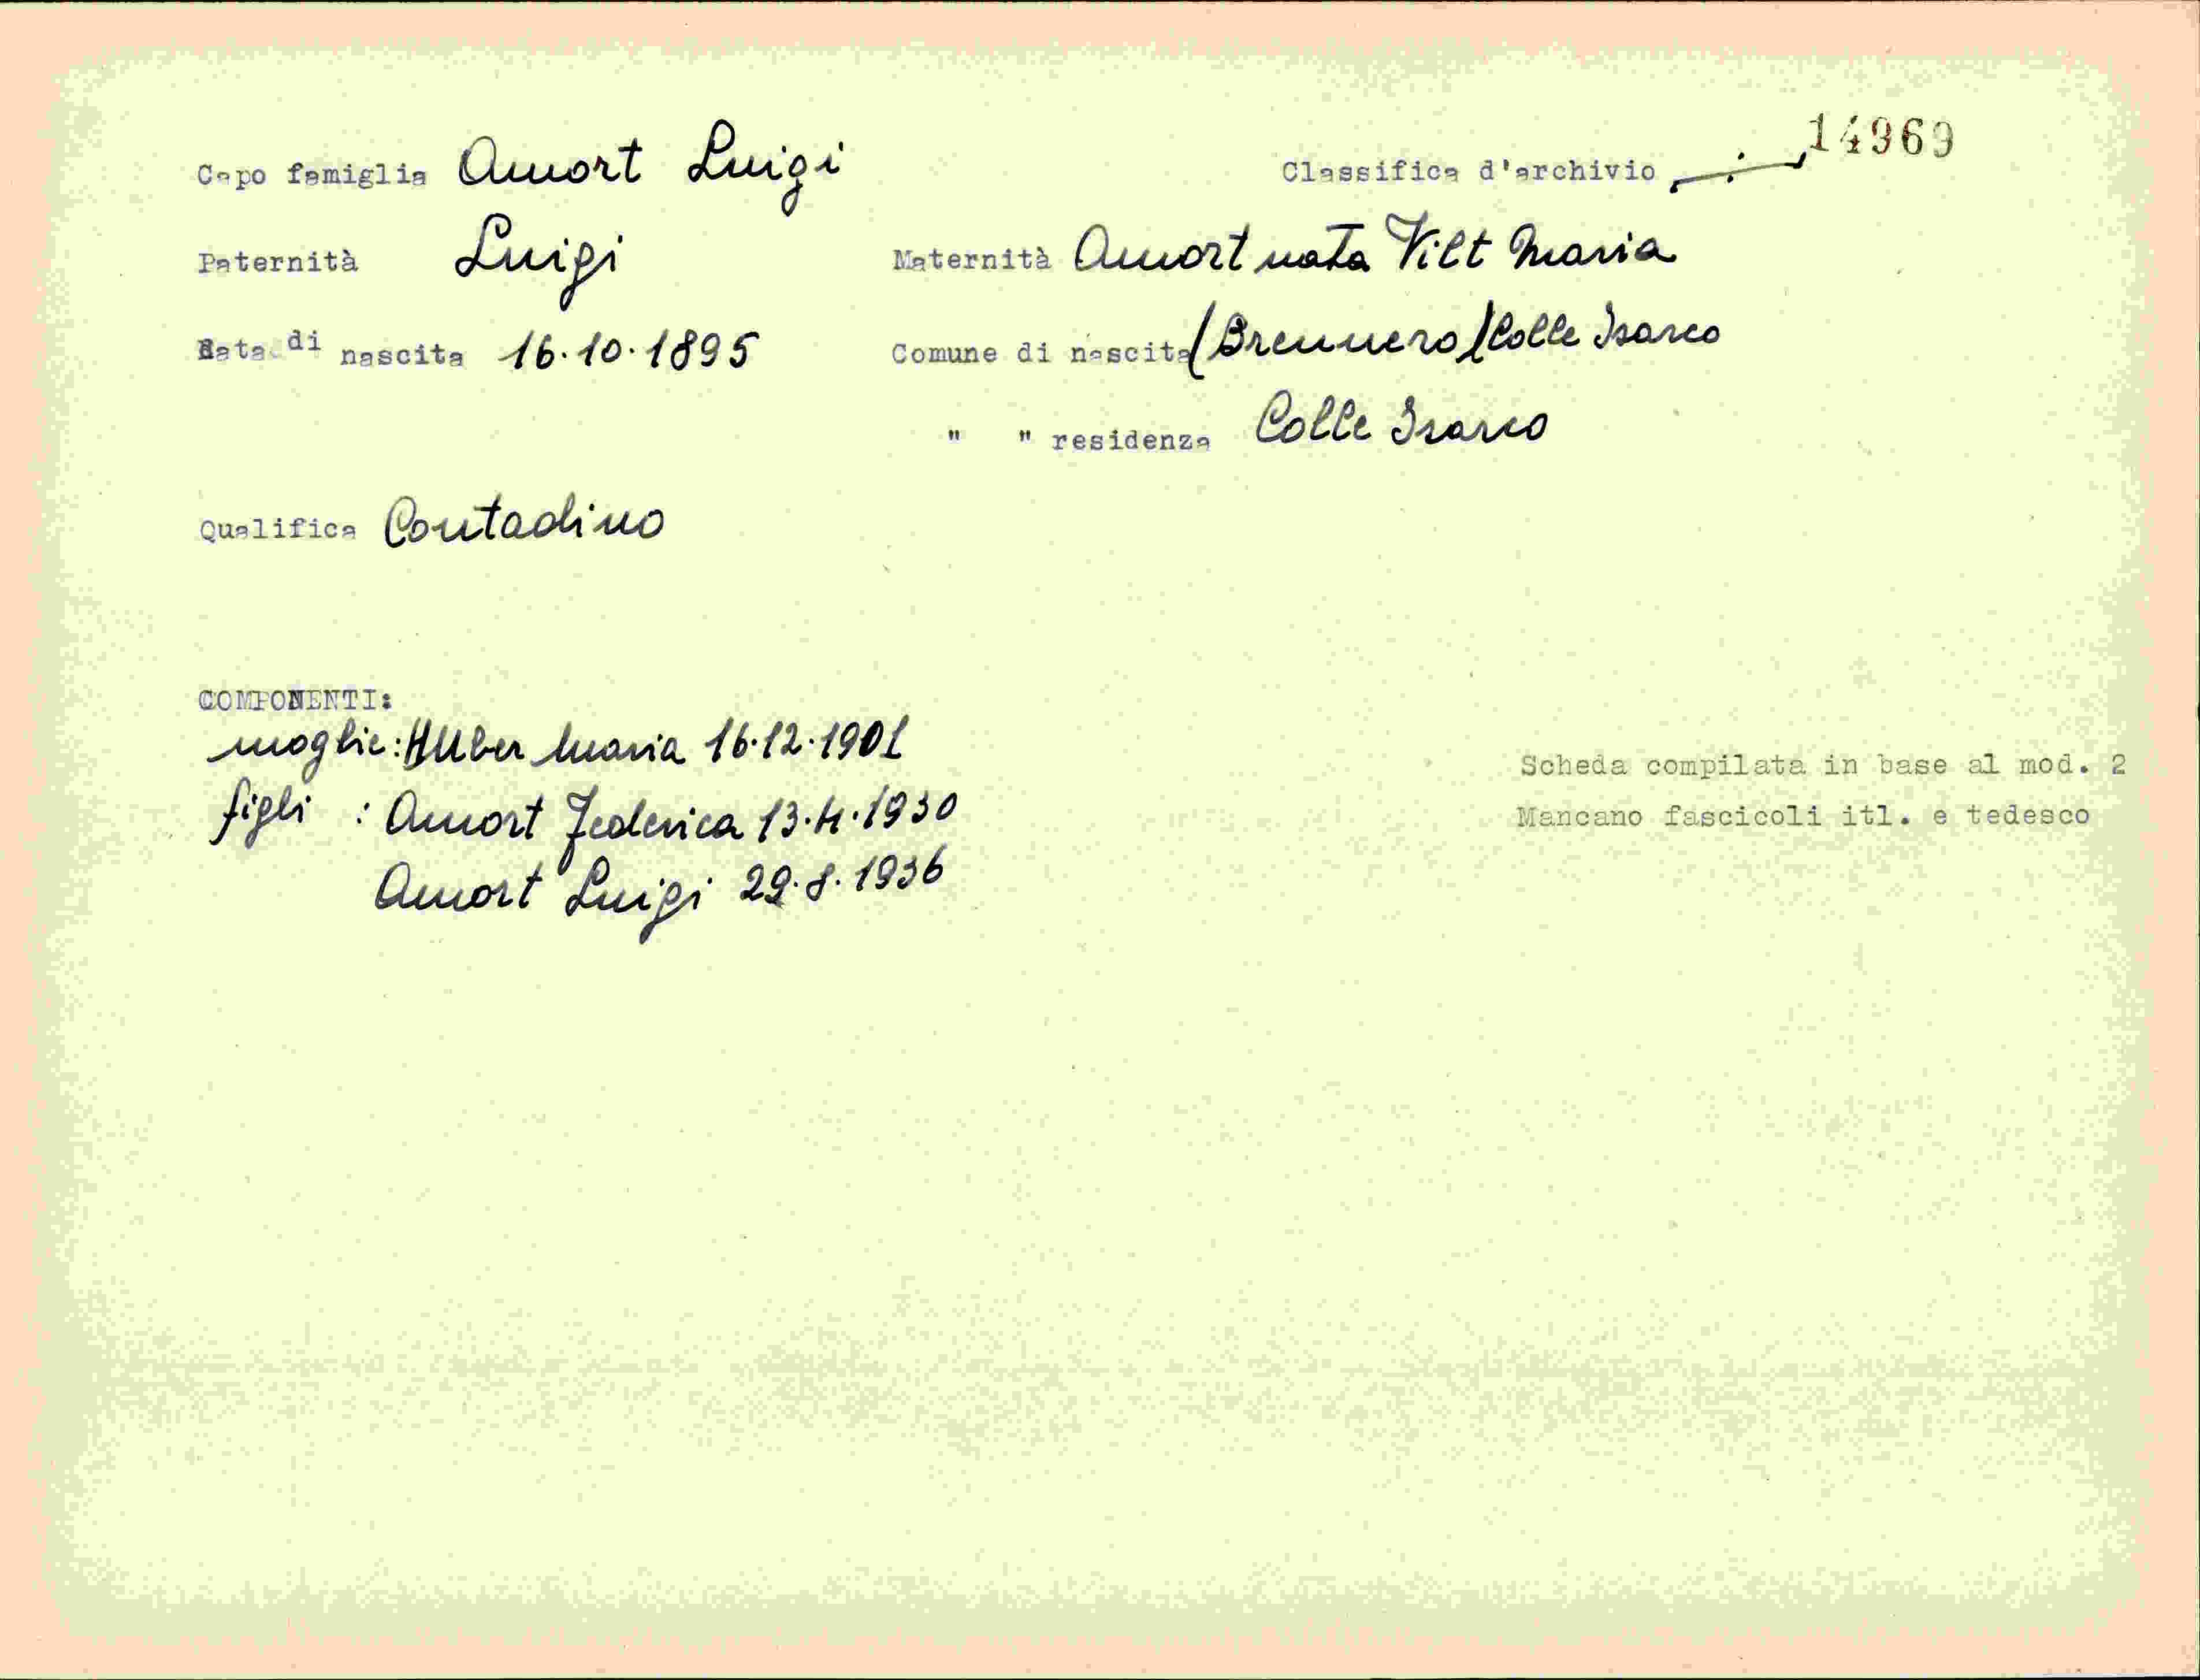 Capo famiglia Amort Luigi Classifica d'archivio 14969
Paternità Luigi Maternità Amort nata Vilt Maria
Data di nascita 16.10.1895 Comune di nascita (Brennero) Colle Isarco
" " residenza Colle Isarco
Qualifica Contadino
COMPONENTI:
moglie: HUber Maria 16.12.1901
figli : Amort Federica 13.4.1930
Amort Luigi 29.8.1936
Scheda compilata in base al mod. 2
Mancano fascicoli itl. e tedesco